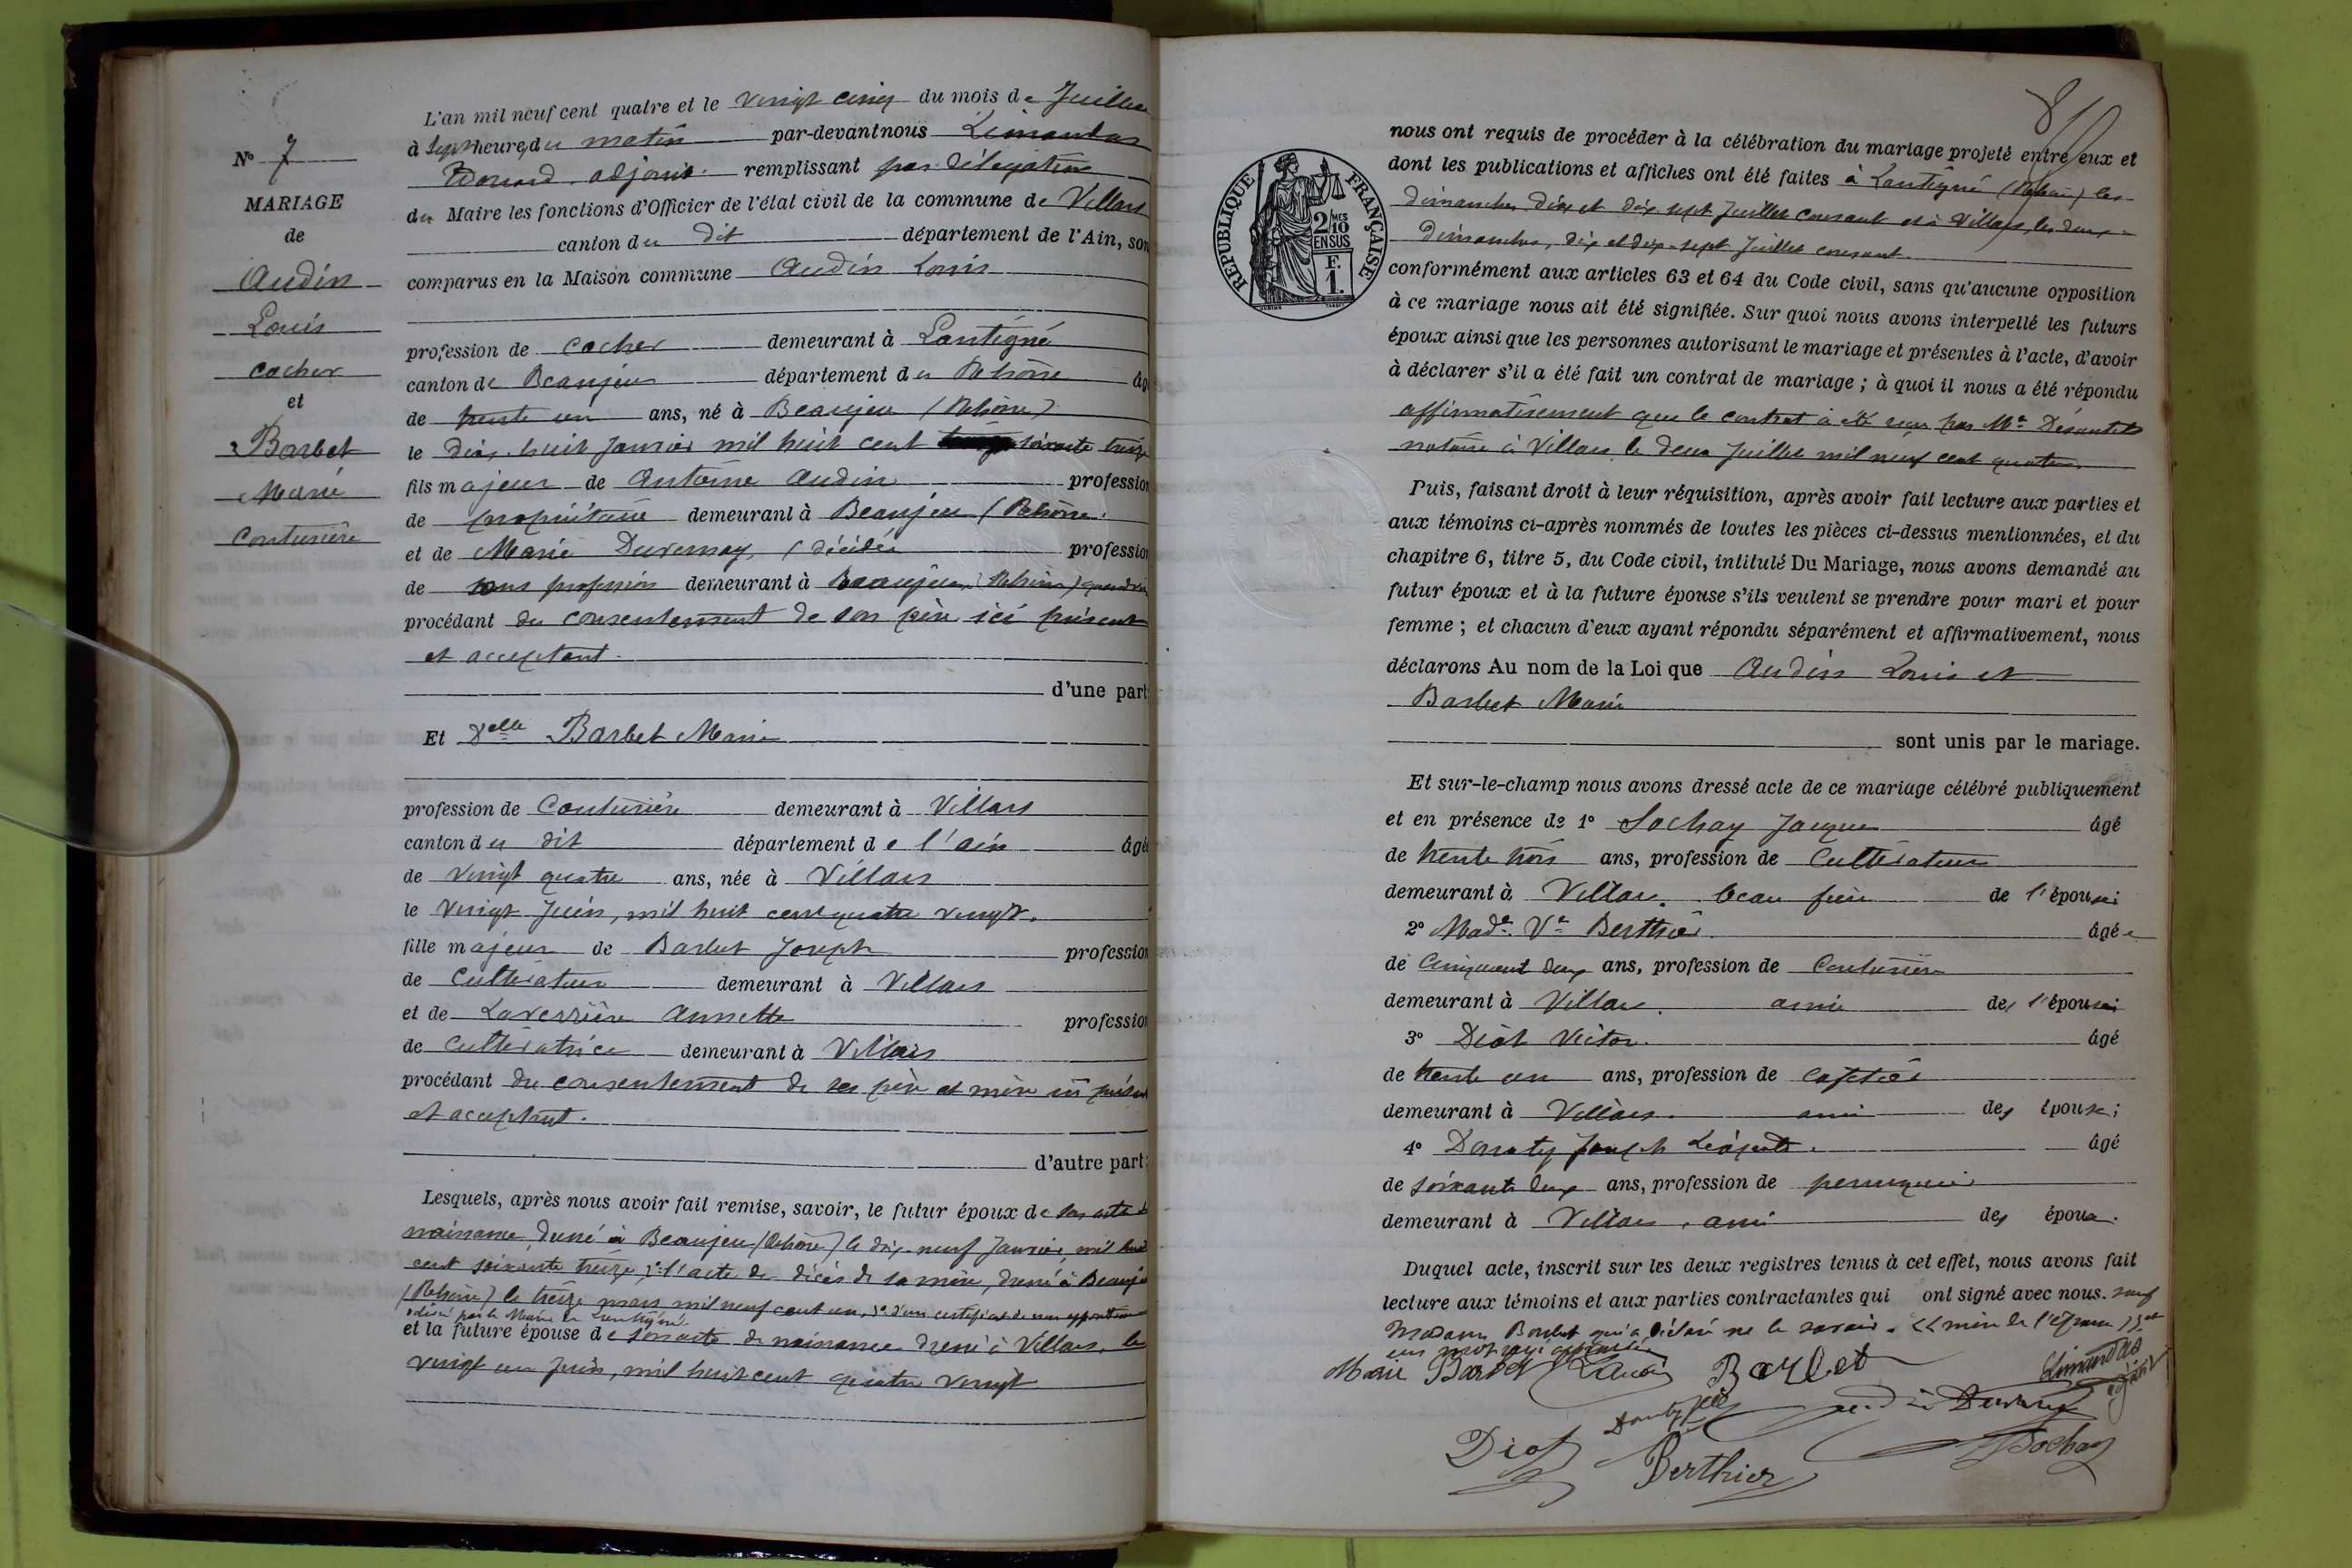 N° 7
MARIAGE
de
Audin
Louis
cocher
et
Barbet
Marie
Couturière
L'an mil neuf cent quatre et le vingt cinq du mois de Juillet
à sept heures du matin par-devant nous Limandas
Edouard adjoint remplissant par délégation
du Maire les fonctions d'Officier de l'état civil de la commune de Villars
canton du dit département de l'Ain, son
comparus en la Maison commune Audin Louis
profession de cocher demeurant à Lantigné
canton de Beaujeu département du Rhône âg
de trente un ans, né à Beaujeu (Rhône)
le dix-huit Janvier mil huit cent soixante treize
fils majeur de Antoine Audin profession
de propriétaire demeurant à Beaujeu (Rhône.
et de Marie Duvernay, (décédée profession
de sans profession demeurant à Beaujeu (Rhône)
procédant du consentement de son père ici présent
et acceptant.
d'une part
Et Delle Barbet Marie
profession de Couturière demeurant à Villars
canton du dit département de l'ain âgé
de vingt quatre ans, née à Villars
le vingt Juin, mil huit cent quatre vingt.
fille majeur de Barbet Joseph profession
de cultivateur demeurant à Villars
et de Laverrière Annette profession
de cultivatrice demeurant à Villars
procédant du consentement de ses père et mère ici présent
et acceptant.
d'autre part
Lesquels, après nous avoir fait remise, savoir, le futur époux de son acte de
naissance, dressé à Beaujeu (Rhône) le dix-neuf Janvier mil huit
cent soixante treize, 2° l'acte de décès de sa mère, dressé à Beaujeu
(Rhône) le treize mars mil neuf cent un, 3° d'un certificat de non opposition
délivré par le Maire de Lantigné
et la future épouse de son acte de naissance dressé à Villars, le
vingt un Juin, mil huit cent quatre vingt
8
REPUBLIQUE FRANÇAISE
2/10 MES
EN SUS
F.
1.
nous ont requis de procéder à la célébration du mariage projeté entre eux et
dont les publications et affiches ont été faites à Lantigné (Rhône) les
dimanches dix et dix sept Juillet courant et à Villars, les deux
dimanches, dix et dix-sept Juillet courant.
conformément aux articles 63 et 64 du Code civil, sans qu'aucune opposition
à ce mariage nous ait été signifiée. Sur quoi nous avons interpellé les futurs
époux ainsi que les personnes autorisant le mariage et présentes à l'acte, d'avoir
à déclarer s'il a été fait un contrat de mariage ; à quoi il nous a été répondu
affirmativement que le contrat a été reçu par Me
notaire à Villars le deux Juillet mil neuf cent quatre.
Puis, faisant droit à leur réquisition, après avoir fait lecture aux parties et
aux témoins ci-après nommés de toutes les pièces ci-dessus mentionnées, et du
chapitre 6, titre 5, du Code civil, intitulé Du Mariage, nous avons demandé au
futur époux et à la future épouse s'ils veulent se prendre pour mari et pour
femme ; et chacun d'eux ayant répondu séparément et affirmativement, nous
déclarons Au nom de la Loi que Audin Louis et
Barbet Marie
sont unis par le mariage.
Et sur-le-champ nous avons dressé acte de ce mariage célébré publiquement
et en présence de 1° Sochay Jacques âgé
de trente trois ans, profession de Cultivateur
demeurant à Villars. beau frère de l'épouse;
2° Made Ve Berthier âgée
de cinquant deux ans, profession de Couturière
demeurant à Villars. amie de l'épouse
3° Diot Victor. âgé
de trente un ans, profession de cafetier
demeurant à Villars. ami des épouse;
4° Donaty Joseph âgé
de soixante deux ans, profession de perruquier
demeurant à Villars, ami des époux.
Duquel acte, inscrit sur les deux registres tenus à cet effet, nous avons fait
lecture aux témoins et aux parties contractantes qui ont signé avec nous. sauf
Madame Barbet qui a déclaré ne le savoir. mère de l'épouse
Marie Barbet L Audin Barbet Limandas
adjoint
Audin Duvernay
Diot Berthier Sochay